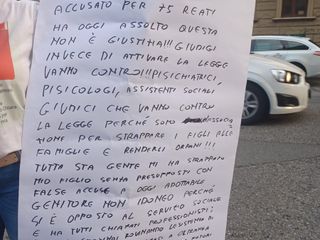 ACCUSATO PER 75 REATI
HA OGGI ASSOLTO QUESTA
NON È GIUSTIZIA!!! GIUDIGI
INVECE DI ATTIVARE LA LEGGE
VANNO CONTRO!!! PISICHIATRICI,
PISICOLOGI, ASSISTENTI SOCIALI
GIUDICI CHE VANNO CONTRO
LA LEGGE PERCHÉ SONO ASSOCIA
ZIONE PER STRAPPARE I FIGLI ALLE
FAMIGLIE E RENDERLI ORFANI!!!
TUTTA STA GENTE MI HA STRAPPATO
MIO FIGLIO SENZA PRESUPPOSTI CON
FALSE ACCUSE E OGGI ADOTTABILE
GENITORE NON IDONEO PERCHÉ
SI È OPPOSTO AL SERVIZIO SOCIALE
E HA TUTTI CHIAMATI PROFESSIONISTI!
ROVINANDO LESISTENZA